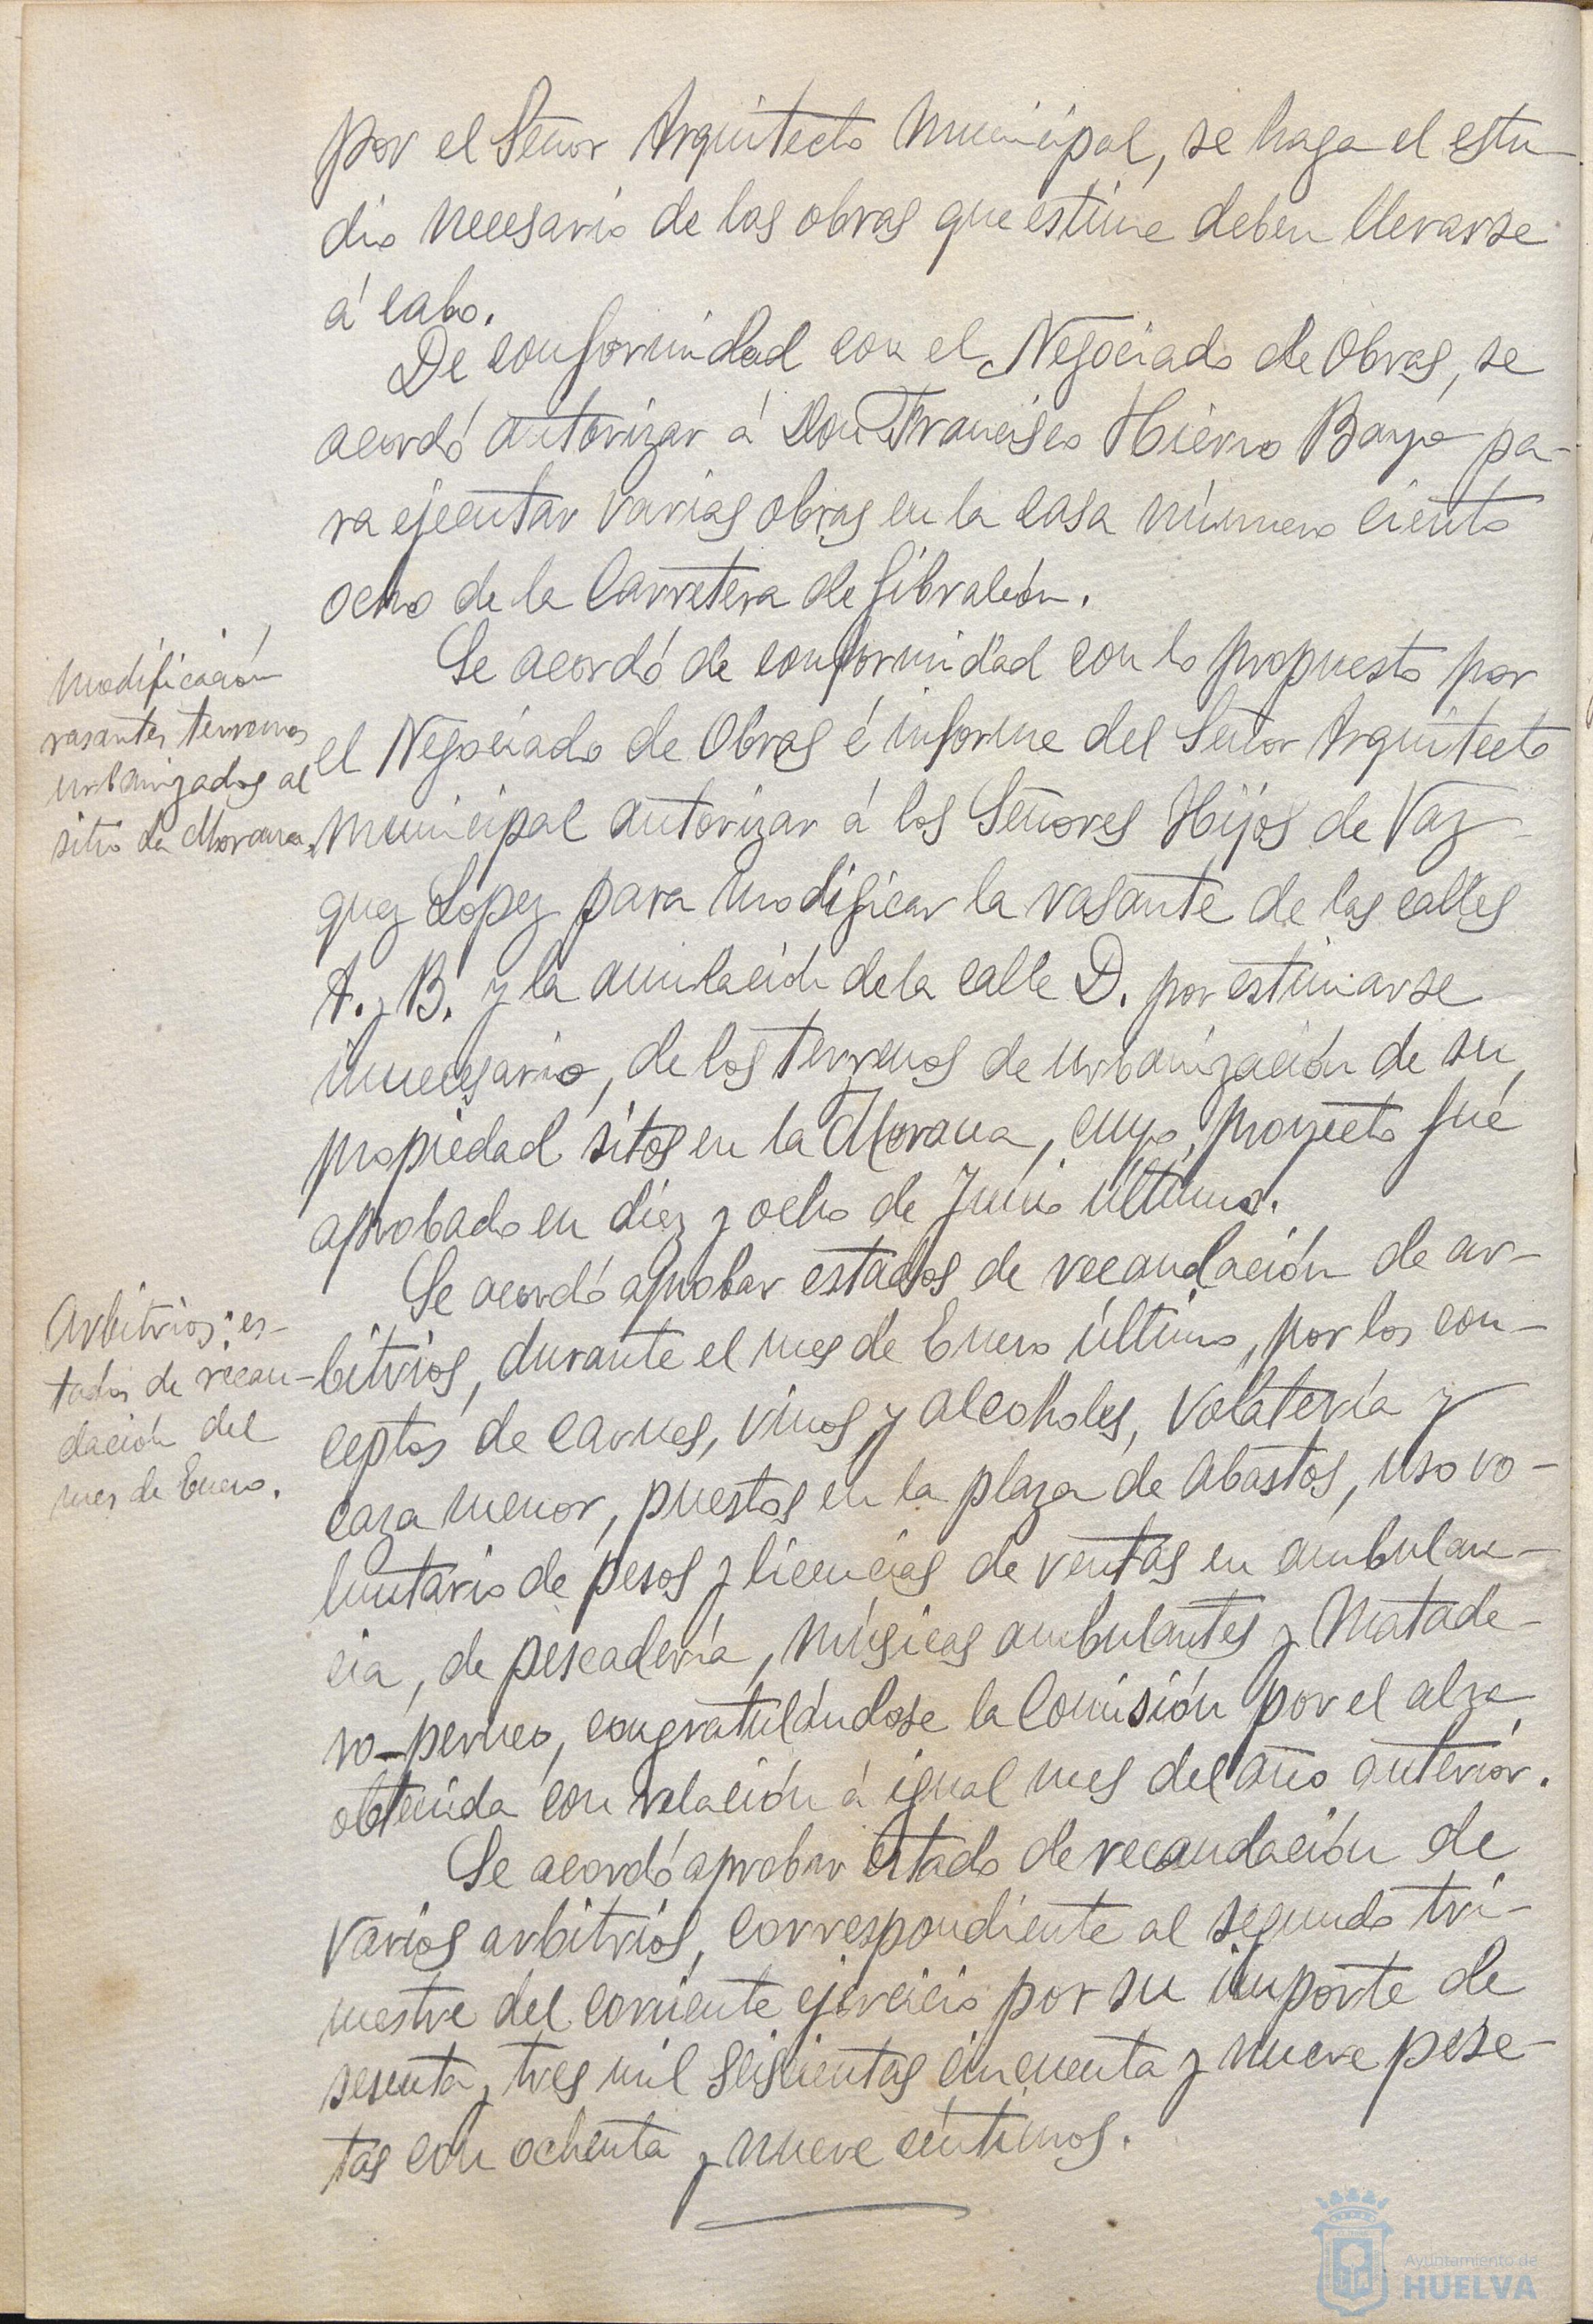 por el Señor Arquitecto Municipal, se haga el estu-
dio necesario de las obras que estime deben llevarse
á cabo.
De conformidad con el Negociado de Obras, se
acordó autorizar á Don Francisco Hierro Bayo pa-
ra ejecutar varias obras en la casa número ciento
ocho de la Carretera de Gibraleón.
Modificación
rasantes terrenos
urbanizados al
sitio La Morana.
Se acordó de conformidad con lo propuesto por
el Negociado de Obras é informe del Señor Arquitecto
Municipal autorizar á los Señores Hijos de Vaz-
quez López para modificar la rasante de las calles
A. y B. y la anulación de la calle D. por estimarse
innecesario, de los terrenos de urbanización de su
propiedad sitos en la Morana, cuyo proyecto fué
aprobado en diez y ocho de Junio último.
Arbitrios: es-
tados de recau-
dación del
mes de Enero.
Se acordó aprobar estados de recaudación de ar-
bitrios, durante el mes de Enero último, por los con-
ceptos de carnes, vinos y alcoholes, volatería y
caza menor, puestos en la plaza de Abastos, uso vo-
luntario de pesos y licencias de ventas en ambulan-
cia, de pescadería, músicas ambulantes y Matade-
ro-perneo, congratulándose la Comisión por el alza
obtenida con relación á igual mes del año anterior.
Se acordó aprobar estado de recaudación de
varios arbitrios, correspondiente al segundo tri-
mestre del corriente ejercicio por su importe de
sesenta y tres mil seiscientas cincuenta y nueve pese-
tas con ochenta y nueve céntimos.
Ayuntamiento de
HUELVA